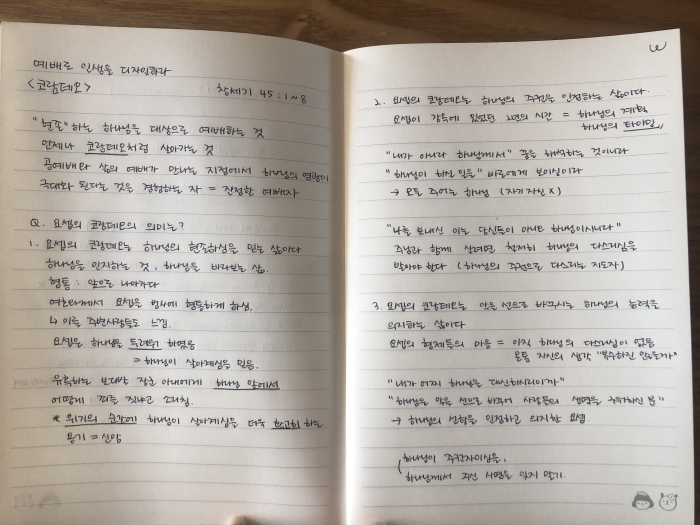 예배로 인생을 디자인하라
<코람데오> 창세기 45:1~8
"현존"하는 하나님을 대상으로 예배하는 것
언제나 코람데오처럼 살아가는 것
공예배와 삶의 예배가 만나는 지점에서 하나님의 영광이
극대화 된다는 것을 경험하는 자 = 진정한 예배자
Q. 요셉의 코람데오의 의미는?
1. 요셉의 코람데오는 하나님의 현존하심을 믿는 삶이다
하나님을 인지하는 것, 하나님을 바라보는 삶.
형통 : 앞으로 나아가다
여호와께서 요셉을 범사에 형통하게 하심.
↳ 이를 주변사람들도 느낌.
요셉은 하나님을 두려워 하였음
= 하나님이 살아계심을 믿음.
유혹하는 보디발 장군 아내에게 하나님 앞에서
어떻게 죄를 짓냐고 소리침.
* 위기의 순간에 하나님이 살아계심을 더욱 확고히 하는
용기 = 신앙
2. 요셉의 코람데오는 하나님의 주권을 인정하는 삶이다.
요셉이 감옥에 있었던 2년의 시간 = 하나님의 계획
하나님의 타이밍
"내가 아니라 하나님께서" 꿈을 해석하는 것이니라
"하나님이 하실 일을" 바로에게 보이심이라
→ 모든 주어는 하나님 (자기 자신 X)
"나를 보내신 이는 당신들이 아니요 하나님이시니라"
주님과 함께 살려면 철저히 하나님의 다스리심을
받아야 한다 (하나님의 주권으로 다스리는 지도자)
3. 요셉의 코람데오는 악을 선으로 바꾸시는 하나님의 능력을
의지하는 삶이다
요셉의 형제들의 마음 = 아직 하나님의 다스리심이 없음
온통 자신의 생각 "복수하진 않을까"
"내가 어찌 하나님을 대신하리이까"
"하나님은 악을 선으로 바꾸어 사람들의 생명을 구원하신 분"
→ 하나님의 선하을 인정하고 의지한 요셉.
하나님이 주권자이심을,
하나님께서 주신 사명을 잊지 말기.